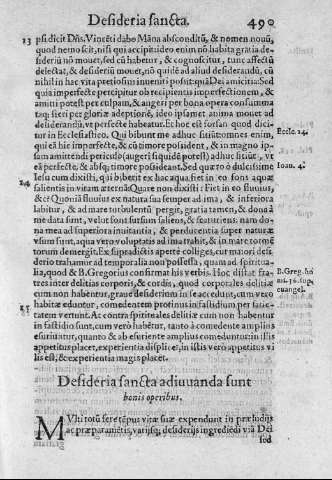 Desideria sancta. 490
13 psi dicit Dñs. Vincēti dabo Māna absconditū, & nomen nouū,
quod nemo scit, nisi qui accipit: ideo enim nō habita gratia de-
sideriū nō mouet, sed cū habetur, & cognoscitur, tunc affectū
delectat, & desideriū mouet, nō quidē ad aliud desiderandū, cū
nihil in hac vita pretiosius inueniri possit quā Dei amicitia: Sed
quia imperfecte percipitur ob recipientis imperfectionem, &
amitti potest per culpam, & augeri per bona opera consumma
taq; fieri per gloriæ adeptionē, ideo ipsamet anima mouet ad
desiderandū, vt perfecte habeatur. Et hoc est forsan quod dici-
tur in Ecclesiastico. Qui bibunt me adhuc sitiūt: omnes enim,
qui eā hic imperfecte, & cū timore possident, & in magno ip-
sam amittendi periculo (augeri siquidē potest) adhuc sitiūt, vt
eā perfecte, & absq; timore possideant. Sed quæro ò dulcissime
Iesu cum dixisti, qui biberit ex hac aqua, fiet in eo fons aquæ
24 salientis in vitam æternā: Quare non dixisti: Fiet in eo fluuius,
&c? Quoniā fluuius ex natura sua semper ad ima, & inferiora
labitur, & ad mare turbulentū pergit, gratia tamen, & dona à
me data sunt, velut fons sursum saliens, &
na mea ad superiora inuitantia, & perducentia super naturæ
vsum sunt, aqua vero voluptatis ad ima trahit, & in mare tormē
torum demergit. Ex supradictis aperte colliges, cur maiori desi-
derio trahamur ad temporalia non possessa, quam ad spiritua-
lia, quod & B. Gregorius confirmat his verbis. Hoc distat fra-
tres inter delitias corporis, & cordis, quod corporales delitiæ
cum non habentur, graue desiderium in se accendunt, cum vero
25 habitæ eduntur, comedentem protinus in fastidium per satie-
tatem vertunt. At contra spirituales delitiæ cum non habentur
in fastidio sunt, cum vero habētur, tanto à comedente amplius
esuriuntur, quanto & ab esuriente amplius comeduntur in illis
appetitus placet, experientia displicet, in istis vero appetitus vi
lis est, & experientia magis placet.
Eccle. 24.
Ioan. 4.
B. Greg. ho
mi. 36. sup.
euangel.
Desideria sancta adiuuanda sunt
bonis operibus.
MVlti totū fere tēpus vitæ suæ expendunt in præludijs
ac præparamētis, varijsq; desiderijs ingrediēdi viā Dei
sed